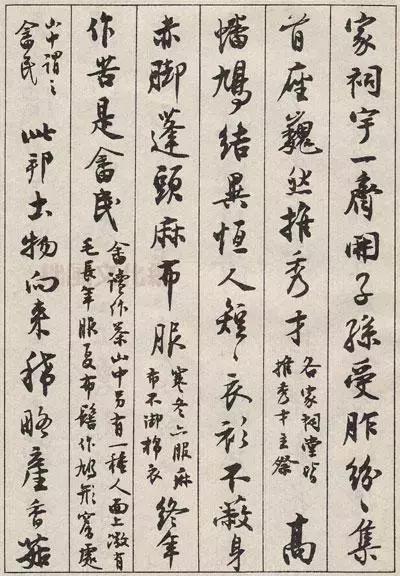 家祠宇一齊開子孫受胙紛〻集
首座巍然推秀才
各家祠堂皆
推秀才主祭
高
蟠鳩結異恒人短〻衣衫不蔽身
赤脚蓬頭麻布服
寒冬亦服麻
布不御棉衣
終年
作苦是畬民
畬讀作茶山中另有一種人面上微有
毛長年服夏布髻作鳩形窮處
山中謂之
畬民
此邦土物向來稀略產香菇